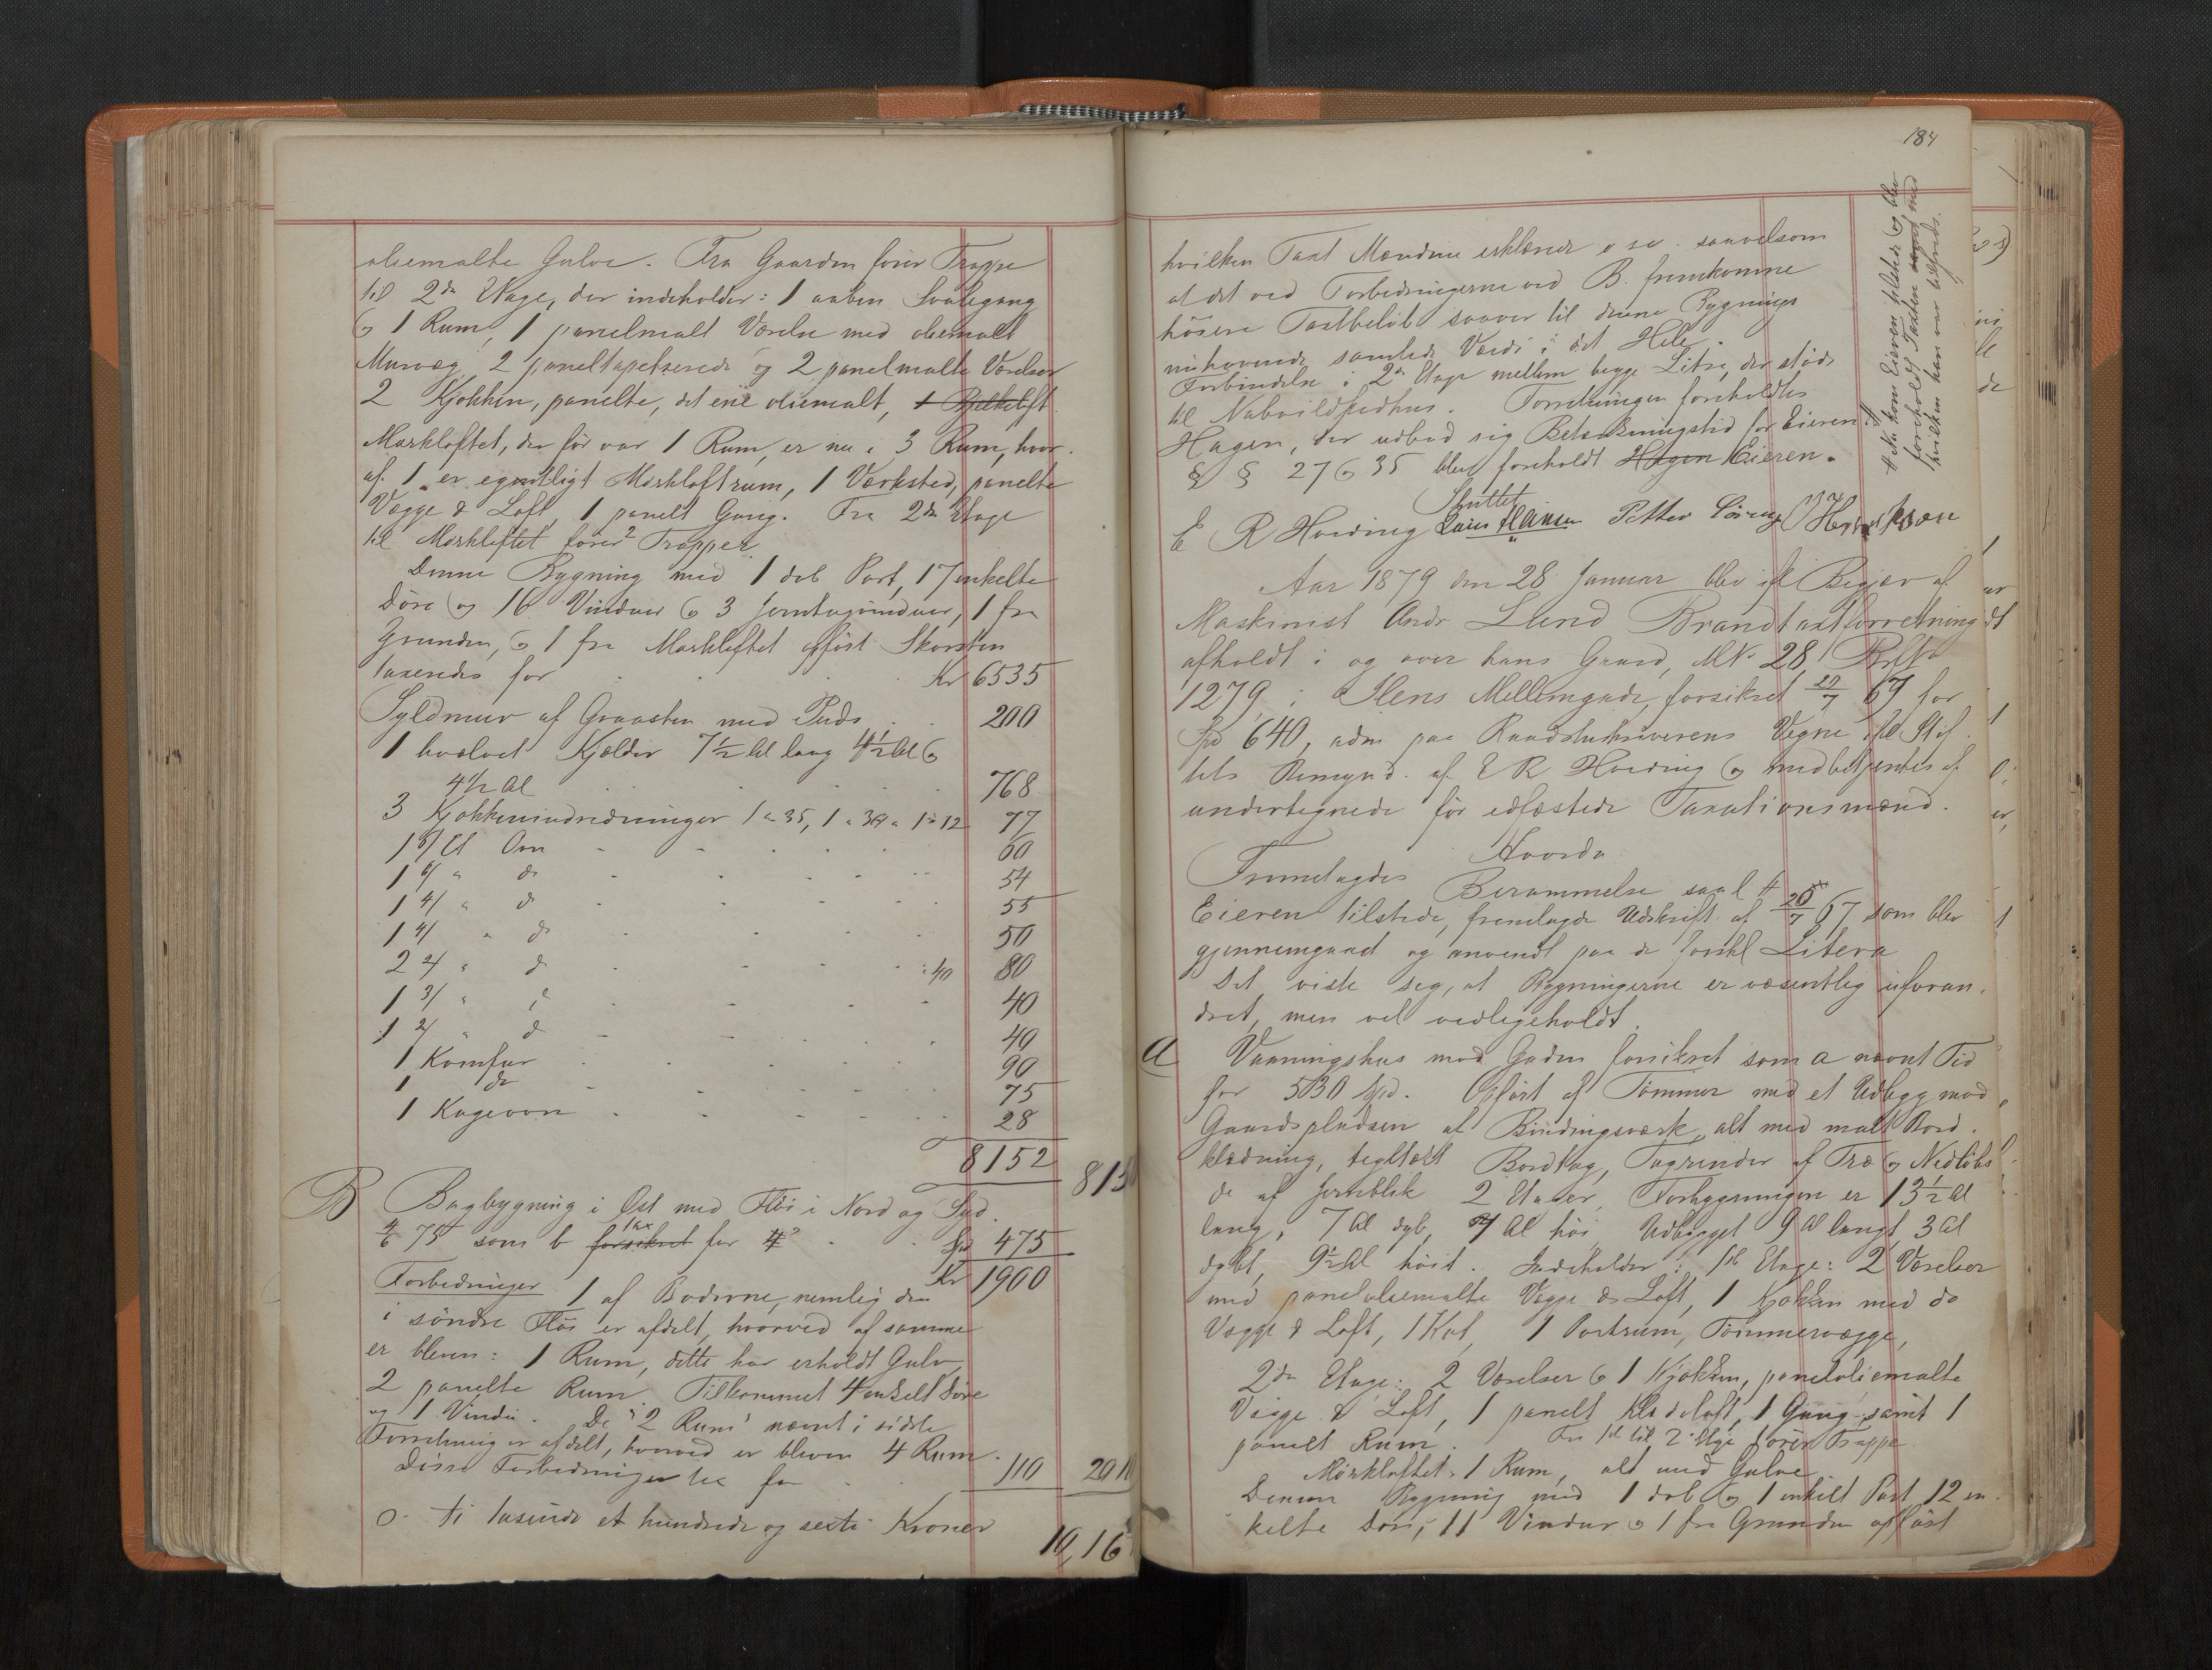 oliemalte Gulve. Fra Gaarden fører Trappe
til 2den Etage, der indeholder: 1 aaben Svalegang
og 1 Rum, 1 panelmalt Værelse med oliemalt
Murvæg, 2 paneltapetserede og 2 panelmalte Værelser
2 Kjøkken, panelte, det ene oliemalt,
Mørkloftet, der før var 1 Rum, er nu i 3 Rum, hvor-
af 1 er egentligt Mørkloftrum, 1 Værksted, panelte
Vægge & Loft, 1 panelt Gang. Fra 2den Etage
til Mørkloftet fører 2 Trapper.
Denne Bygning med 1 dob Port, 17 enkelte
Døre og 16 Vinduer og 3 Jerntagvinduer, 1 fra
Grunden, og 1 fra Mørkloftet opført Skorsten
taxeredes for Kr 6535
Syldmur af Graasten med Puds 200
1 hvælvet Kjælder 7 1/2 Al lang 4 1/2 Al og
4 1/2 Al 768
3 Kjøkkenindredninger 1 a 35, 1 a 30 a 1 a 12 77
1 6/ Et Ovn 60
1 6/ " do 54
1 4/ " do 55
1 4/ " do 50
2 4/ " do : 40 80
1 3/ " do 40
1 2/ " do 40
1 Komfur 90
1 do 75
1 Kageovn 28
8152 815
B Bagbygning i Øst med Fløi i Nord og Syd.
4/6 75 som b forsikret tax for Spd 475
Kr 1900
Forbedringer 1 af Boderne, nemlig den
i søndre Fløi er afdelt, hvorved af samme
er bleven: 1 Rum, dette har erholdt Gulv,
2 panelte Rum. Tilkommet 4 enkelt Døre
og 1 Vindu. De "2 Rum" nævnt i sidste
Forretning er afdelt, hvorved er bleven 4 Rum.
Disse Forbedringer tax for 110 201
ti tusinde et hundrede og sexti Kroner
10,16
184
hvilken Taxt Mændene erklærede saavelsom
at det ved Forbedringerne ved B. fremkomne
høiere Taxtbeløb svarer til denne Bygnings
nuhavende samlede Værdi i det Hele.
Forbindelse i 2den Etage mellem begge Litra, der støde
til Nabovildfredhus. Forretningen foreholdtes
Hagen, der udbad sig Betænkningstid for Eieren. #
§ § 27 og 35 blev foreholdt Hagen Eieren.
Sluttet
E R Hoeding Lars Hansen Petter Henriksen
# Nu kom Eieren tilstede og blev
foreholdt Taxten med
hvilken han var tilfreds.
Aar 1879 den 28 Januar blev efter Begjær af
Maskinist Andr Lund Brandtaxtforretning
afholdt i og over hans Gaard, MNo 28
1279, i Ilens Mellemgade, forsikret 29/7 67 for
Spd 640, adm paa Raadstuskriverens Vegne ifl Stif-
tets Bemynd. af E R Hoeding og medbetjentes af
undertegnede før edfæstede Taxationsmænd.
Hvorda
Fremlagdes Berammelse saal #
Eieren tilstede, fremlagde Udskrift af 26/7 67 som blev
gjennemgaaet og anvendt paa de forskl Litera
Det viste sig, at Bygningerne er væsentlig uforan-
dret, men vel vedligeholdt.
A Vaaningshus mod Gaden forsikret som a nævnt Tid
for 530 Spd. Opført af Tømmer med et Udbygg mod
Gaardspladsen af Bindingsværk, alt med malt Bord-
klædning, tegltækt Bordtag, Tagrender af Træ og Nedløbs-
do af Jernblik 2 Etager, Forbygningen er 13 1/2 Al
lang, 7 Al dyb, 9 Al høi Udbygget 9 Al langt, 3 Al
dybt, 9 1/2 Al høit. Indeholder: 1ste Etage: 2 Værelser
med paneloliemalte Vægge & Loft, 1 Kjøkken med do
Vægge & Loft, 1 Kot, 1 Portrum, Tømmervægge,
2den Etage: 2 Værelser og 1 Kjøkken, paneloliemalte
Vægge & Loft, 1 panelt Klædeloft, 1 Gang samt 1
panelt Rum. Fra 1ste til 2den Etge fører Trappe
Mørkloftet: 1 Rum, alt med Gulve
Denne Bygning med 1 dob og 1 enkelt Port, 12 en-
kelte Døre, 11 Vinduer og 1 fra Grunden opført